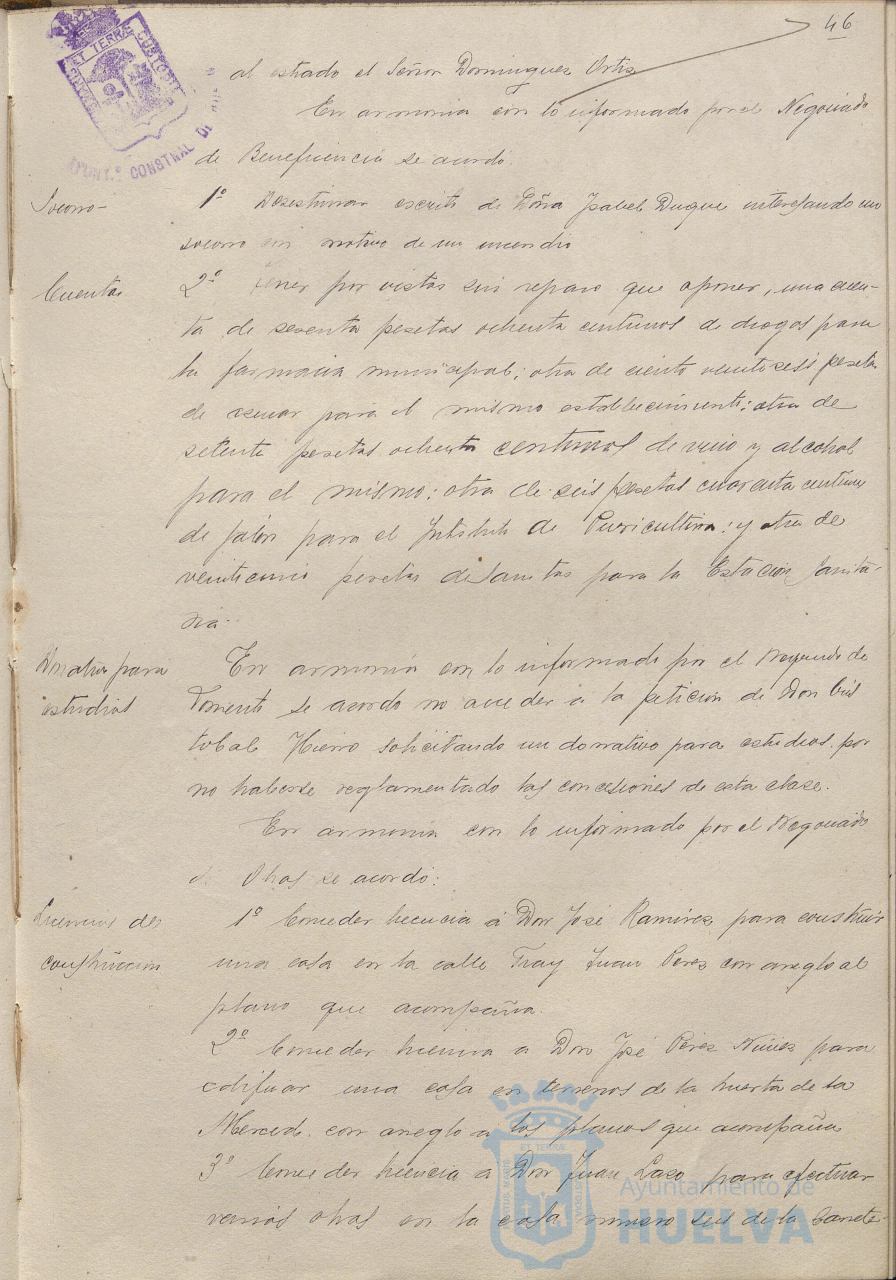 46
al estrado el Señor Dominguez Ortiz
En armonia con lo informado por el Negociado
de Beneficencia se acordó.
Socorro-
1º Desestimar escrito de Doña Isabel Duque interesando un
socorro con motivo de un incendio
Cuentas
2º Tener por vistas sin reparo que oponer, una cuen-
ta de sesenta pesetas ochenta centimos de drogas para
la farmacia municipal; otra de ciento veintiseis pesetas
de azucar para el mismo establecimiento; otra de
setenta pesetas ochenta centimos de vino y alcohol
para el mismo; otra de seis pesetas cuarenta centimos
de jabón para el Instituto de Puericultura; y otra de
veinticinco pesetas de para la Estación Sanita-
ria.
Donativo para
estudios
En armonia con lo informado por el Negociado de
Fomento se acordó no acceder a la petición de Don Cris
tobal Hierro solicitando un donativo para estudios. por
no haberse reglamentado las concesiones de esta clase.
En armonia con lo informado por el Negociado
de Obras se acordó:
Licencias de
construcción
1º Conceder licencia á Don José Ramirez para construir
una casa en la calle Fray Juan Perez con areglo al
plano que acompaña.
2º Conceder licencia a Don José Pérez Nuñez para
edificar una casa en terrenos de la huerta de la
Merced. con areglo a los planos que acompaña
3º Conceder licencia a Don Juan Lazo para efectuar
varias obras en la casa numero seis de la Carrete-
Ayuntamiento de
HUELVA